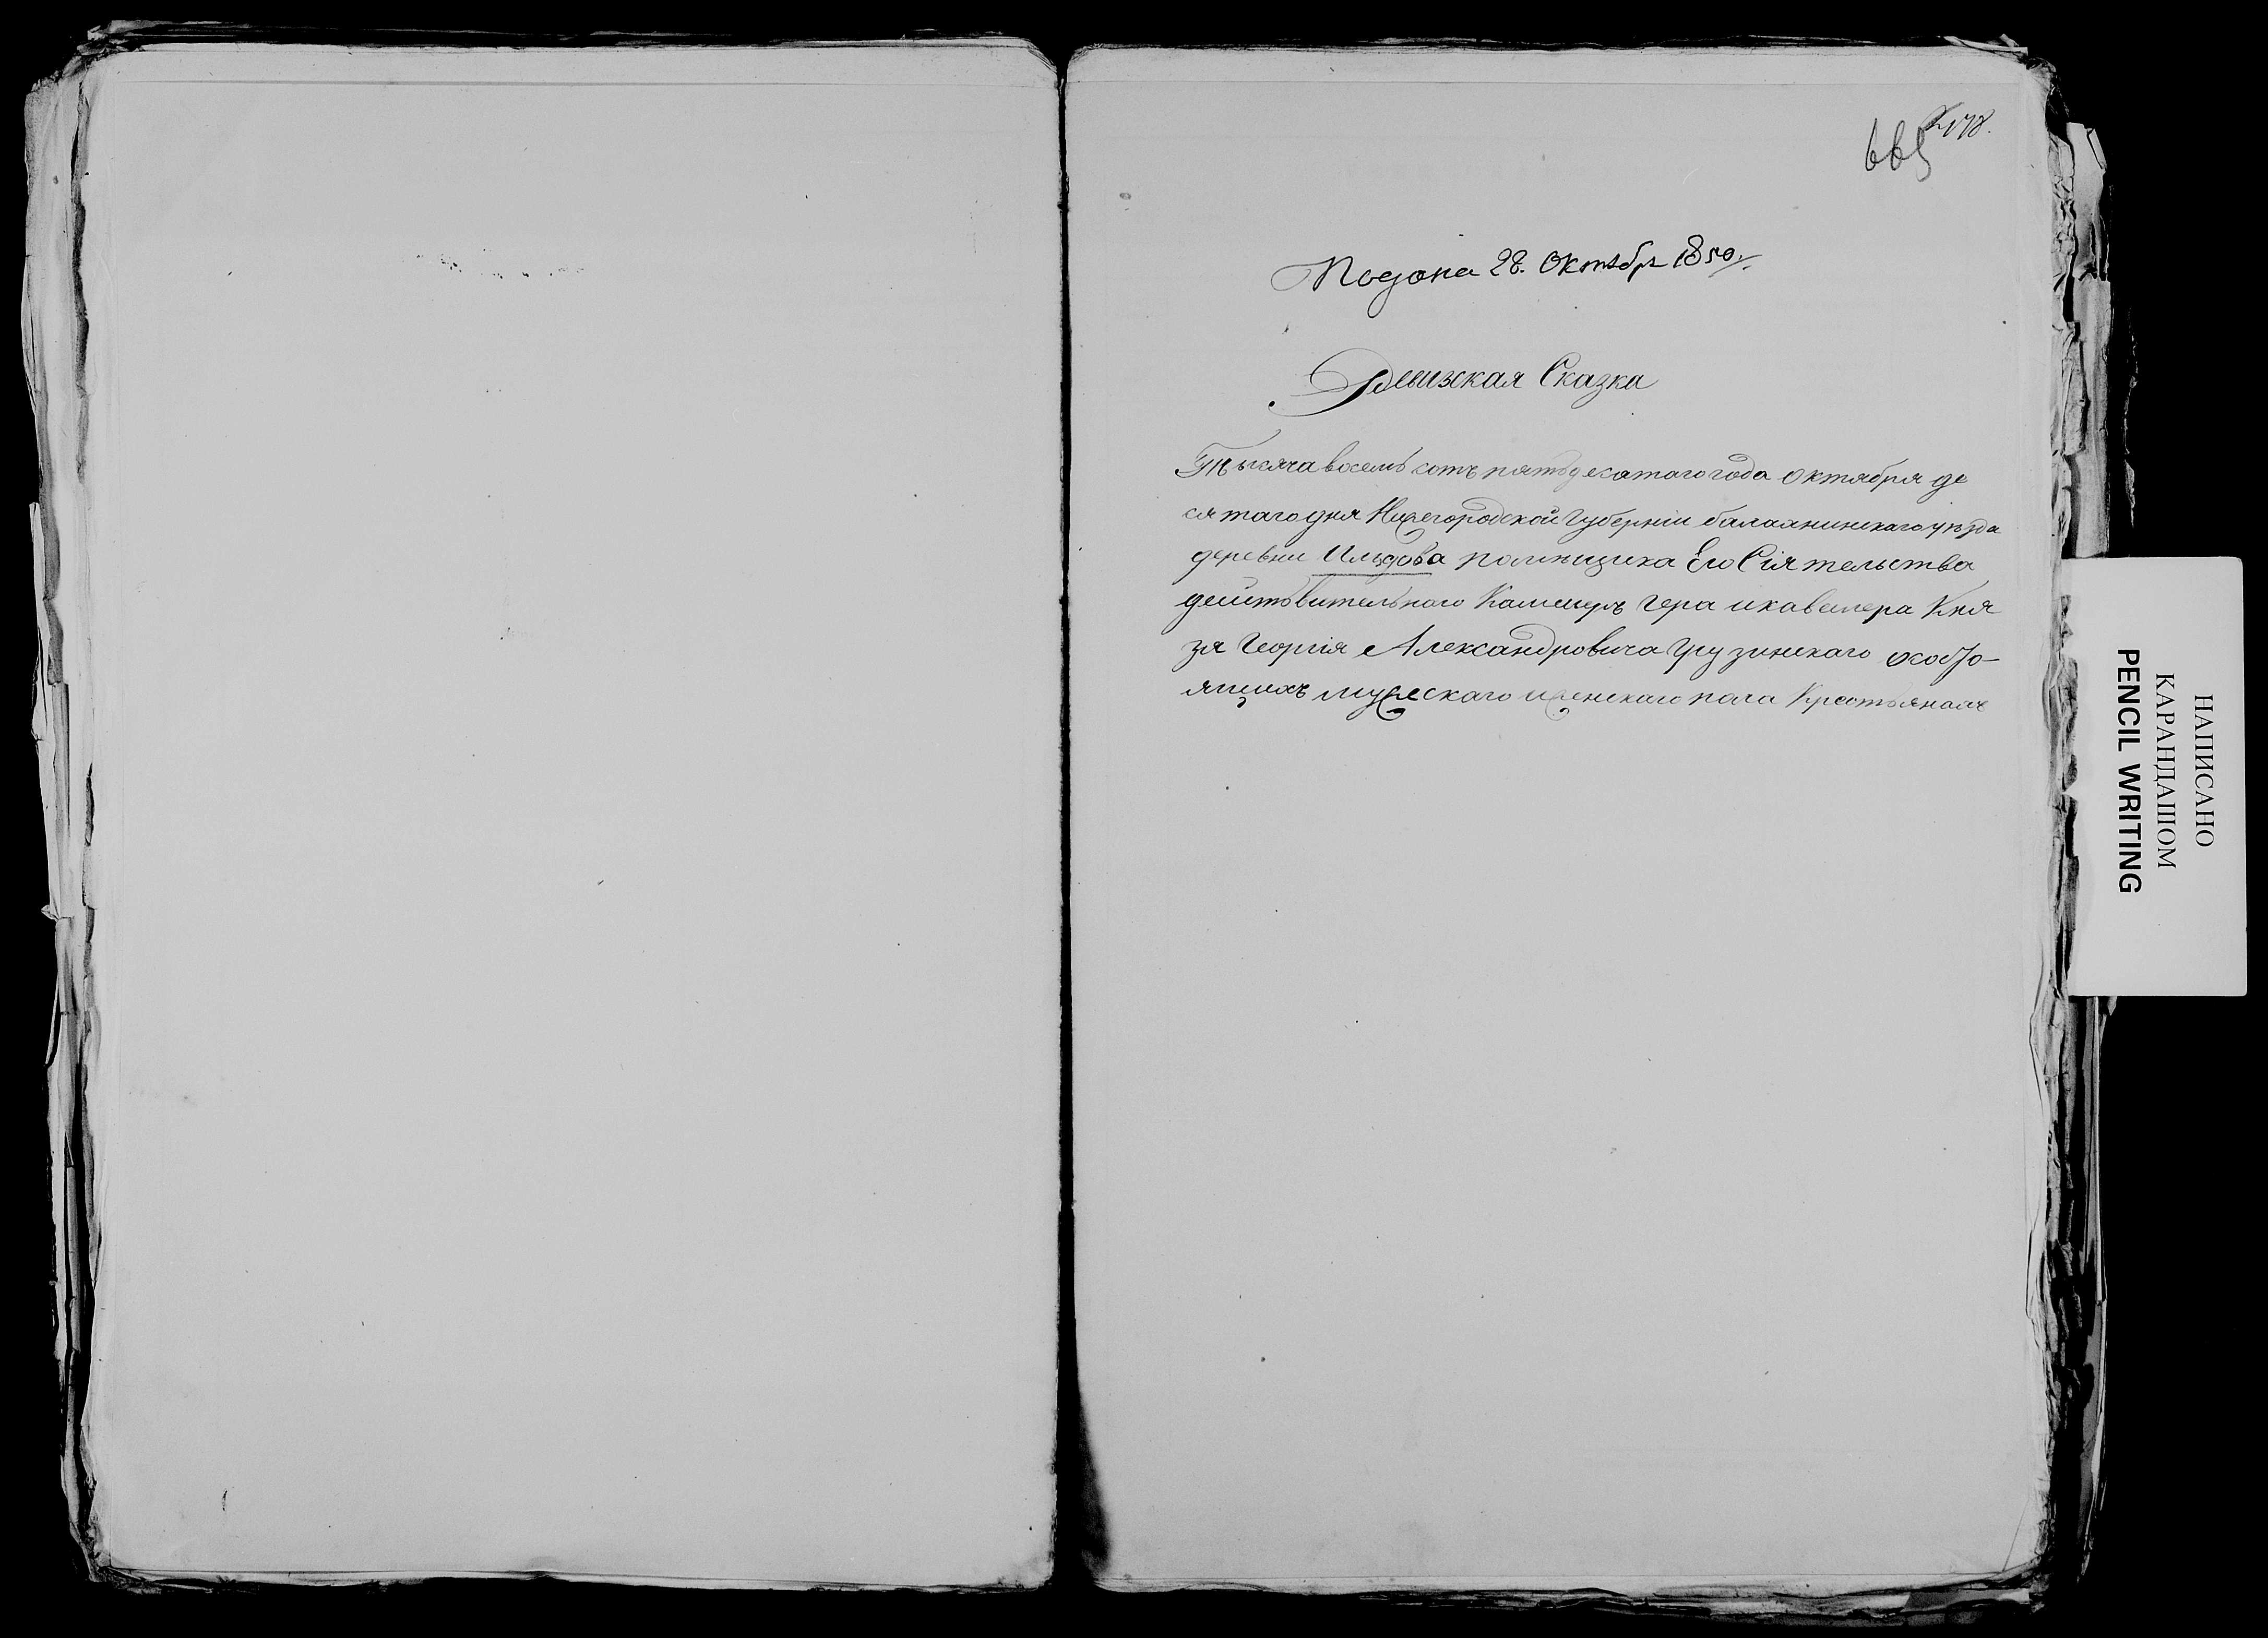 665
178.
Подана 28. Октябр 1850.
Ревижская Сказка
Тысяча восемь сотъ пятьдесятаго года октября де
сятаго дня Нижегородской Губерніи балахнинскаго уѣзда
деревни помѣщика Его Сіятельства
действительнаго Камергера и кавалера Кня
зя Георгія Александровича Грузинскаго о состо-
ящихъ мужескаго и женскаго пола Крестьянахъ
НАПИСАНО
КАРАНДАШОМ
PENCIL WRITING